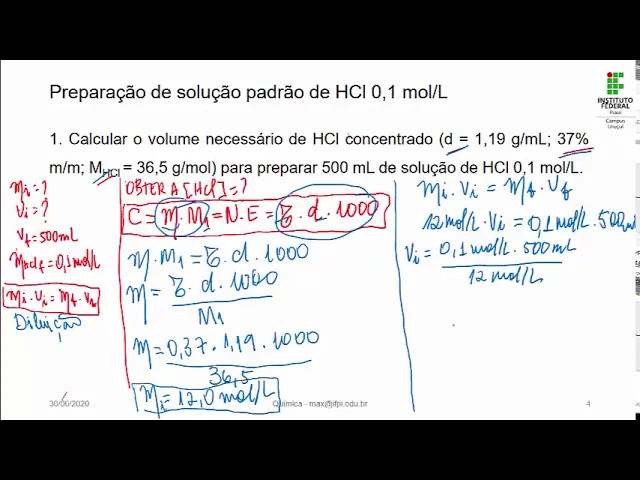 Preparação de solução padrão de HCl 0,1 mol/L
INSTITUTO
FEDERAL
Piauí
Campus
Uruçuí
1. Calcular o volume necessário de HCl concentrado (d = 1,19 g/mL; 37%
m/m; MHCl = 36,5 g/mol) para preparar 500 mL de solução de HCl 0,1 mol/L.
Mi = ?
Vi = ?
Vf = 500 mL
MHClf = 0,1 mol/L
Mi . Vi = Mf . Vf
Diluição
OBTER A [HCl] = ?
C = M . M1 = N . E = τ . d . 1000
M . M1 = τ . d . 1000
M = τ . d . 1000
M1
M = 0,37 . 1,19 . 1000
36,5
Mi = 12,0 mol/L
Mi . Vi = Mf . Vf
12 mol/L . Vi = 0,1 mol/L . 500 mL
Vi = 0,1 mol/L . 500 mL
12 mol/L
30/06/2020
Química - max@ifpi.edu.br
4